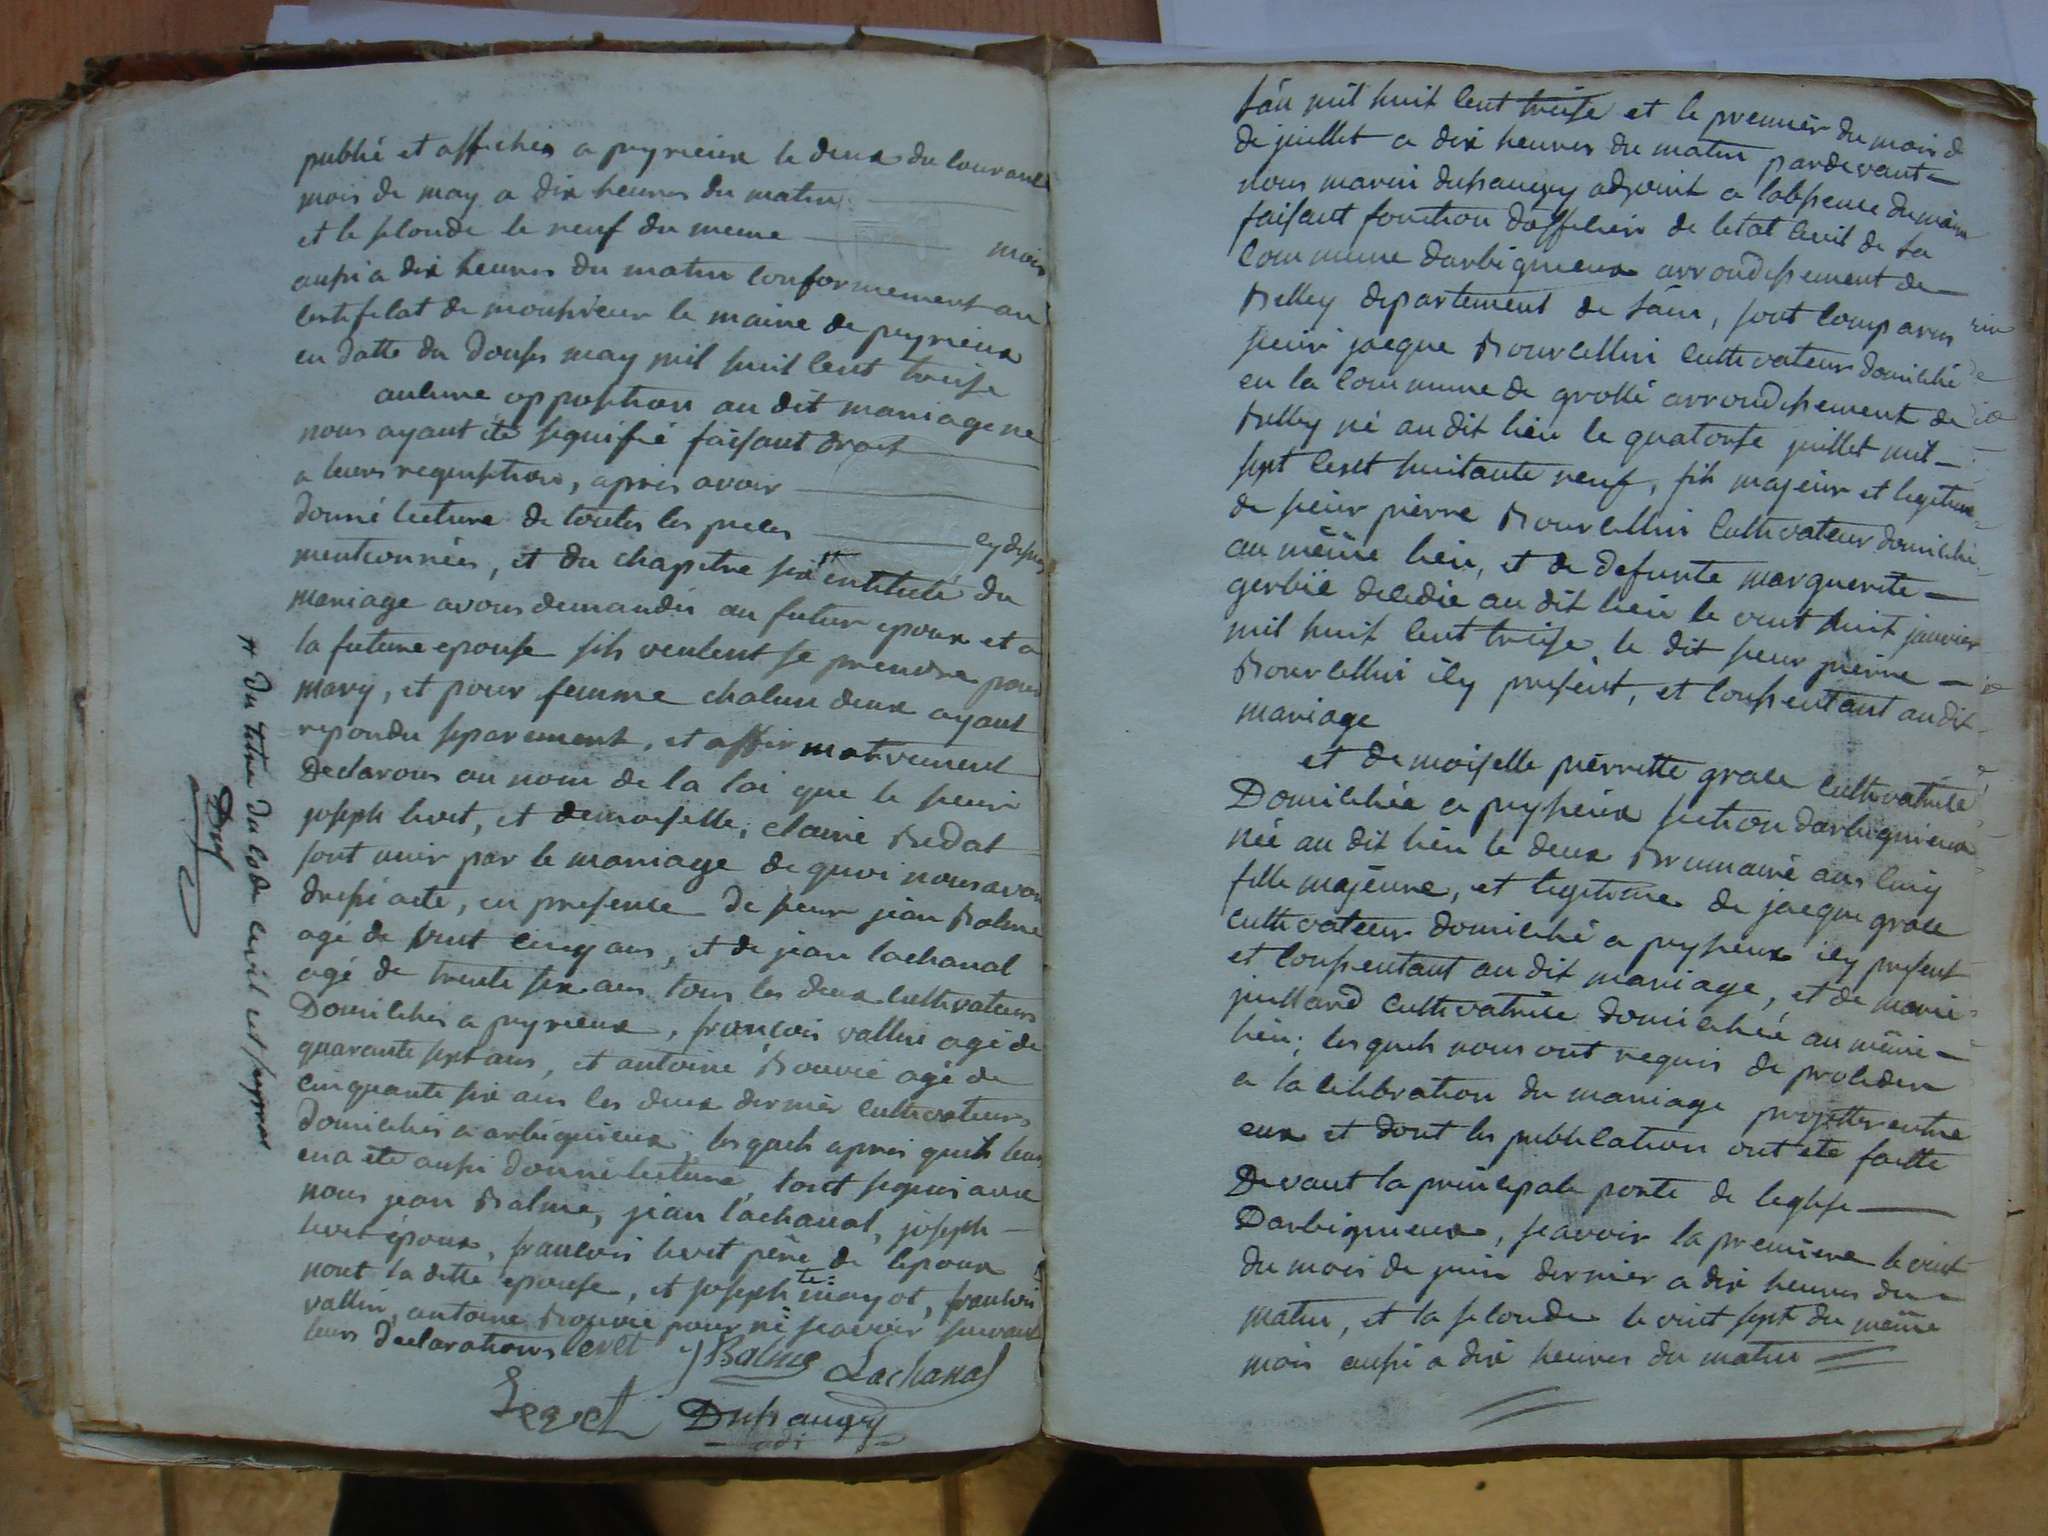 publié et affichés a peyrieux le deux du courant
mois de may a dix heures du matin
et le seconde le neuf du meme mois
aussi a dix heures du matin conformement au
certificat de monsieur le maire de peyrieux
en datte du douse may mil huit cent treise
aucune opposition au dit mariage ne
nous ayant eté signifié faisant droit
a leurs requisition, apres avoir
donné lecture de toutes les pieces cy dessus
mentionnées, et du chapitre six # intitulé du
mariage avons demandés au futur epoux et a
la future epouse sils veulent se prendre pour
mary, et pour femme chacun deux ayant
repondu separement, et affirmativement
Declarons au nom de la loi que le sieur
joseph levet, et demoiselle, claire Bedat
sont unir par le mariage de quoi nous avons
dressé acte, en presence de sieur jean Balme
agé de vint cinq ans, et de jean lachanal
agé de trente six ans tous les deux cultivateurs
Domiciliés a peyrieux, francois vallin agé de
quarante sept ans, et antoine Bouvié agé de
cinquante six ans les deux dernier cultivateurs
domiciliés a arbignieux, lesquels apres quils leurs
en a eté aussi donné lecture, sont signés avec
nous jean Balme, jean lachanal, joseph
levet époux, francois levet père de lepoux
nont la ditte epouse, et joseph mayot, francois
vallin, antoine Bouvié pour ne scavoir suivant
leurs declarations levet JBalme Lachanal
Levet Dupaugey
adj
# du titre du code civil et
l'an mil huit cent treise et le premier du mois de
de juillet a dix heures du matin pardevant
nous marin dupaugey adjoint a labsence du maire
faisant fonction dofficier de letat civil de la
commune darbignieux arrondissement de
Belley departement de lain, sont comparus
sieur jacque Bourcellin cultivateur domicilié
en la commune de grollé arrondissement de
Belley né au dit lieu le quatorse juillet mil
sept cent huitante neuf, fils majeur et legitime
de sieur pierre Bourcellin cultivateur domicilié
au même lieu, et de defunte marguerite
gerbié decedée au dit lieu le vint huit janvier
mil huit cent treise le dit sieur pierre
Bourcellin icy present, et consentant au dit
mariage
et demoiselle pierrette grace cultivatrice
Domiciliée a peysieux section darbignieux
née au dit lieu le deux Brumaire ans cinq
fille majeure, et legitime de jacque grace
cultivateur domicilié a peysieux icy present
et consentant au dit mariage, et de marie
juilland cultivatrice domiciliée au même
lieu; lesquels nous ont requis de proceder
a la celebration du mariage projetter entre
eux et dont les publication ont ete faitte
Devant la principale porte de leglise
Darbignieux, scavoir la premiere le vint
du mois de juin dernier a dix heures du
matin, et la seconde le vint sept du même
mois aussi a dix heures du matin